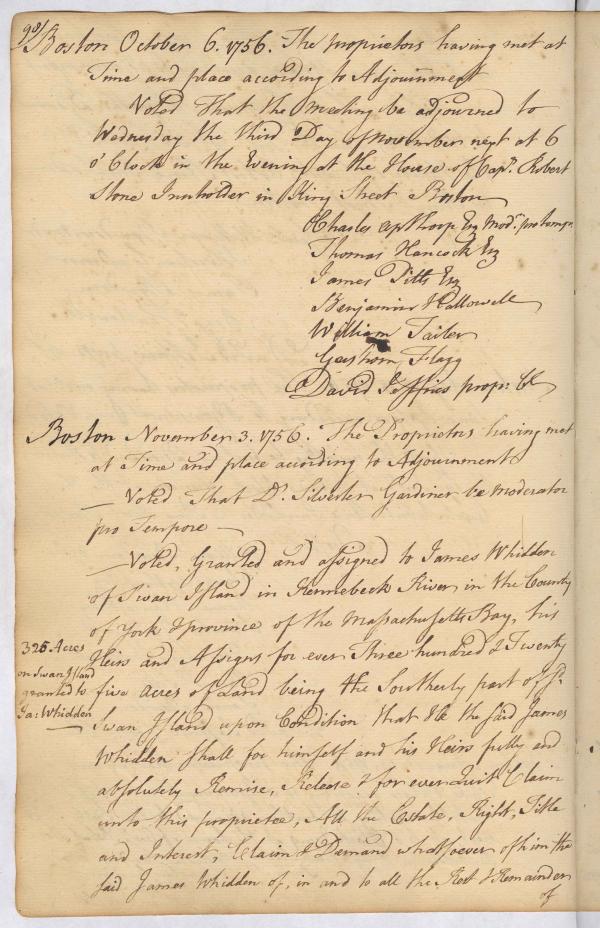 98/
Boston October 6. 1756. The proprietors having met at
Time and place according to Adjournment
Voted That the meeting be adjourned to
Wednesday the third Day of November next at 6
o'Clock in the Evening at the House of Capt. Robert
Stone Innholder in King Street Boston
Charles apthorp Esq Modr. pro temp.
Thomas Hancock Esq
James Pitts Esq
Benjamin Hallowell
William Tailer
Gershom Flagg
David Jeffries propr: Cl
Boston November 3. 1756. The Proprietors having met
at Time and place according to Adjournment
— Voted That Dr. Silvester Gardiner be moderator
pro Tempore —
— Voted, Granted and assigned to James Whidden
of Swan Island in Kennebeck River in the County
of York & province of the Massachusetts Bay, his
Heirs and Assigns for ever Three hundred & Twenty
five acres of Land being the Southerly part of sd.
Swan Island upon Condition that He the said James
Whidden shall for himself and his Heirs fully and
absolutely Remise, Release & for ever Quit Claim
unto this proprietee, All the Estate, Right, Title
and Interest, Claim & Demand whatsoever of him the
said James Whidden of, in and to all the Rest & Remainder
of
325 Acres
on Swan Island
granted to
Ja: Whidden